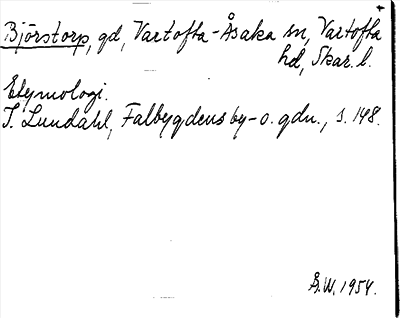 Björstorp, gd, Vartofta-Åsaka sn, Vartofta
hd, Skar. l.
Etymologi.
I. Lundahl, Falbygdens by- o. gdn., s. 148.
Å.W. 1954.